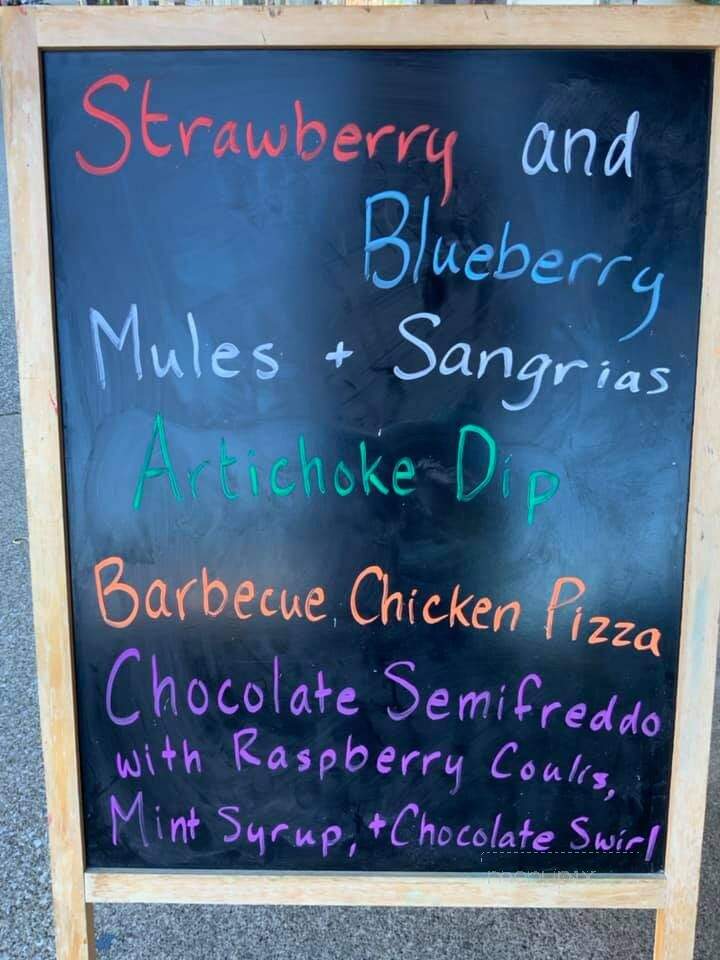 Strawberry and
Blueberry
Mules + Sangrias
Artichoke Dip
Barbecue Chicken Pizza
Chocolate Semifreddo
with Raspberry Coulis,
Mint Syrup, + Chocolate Swirl